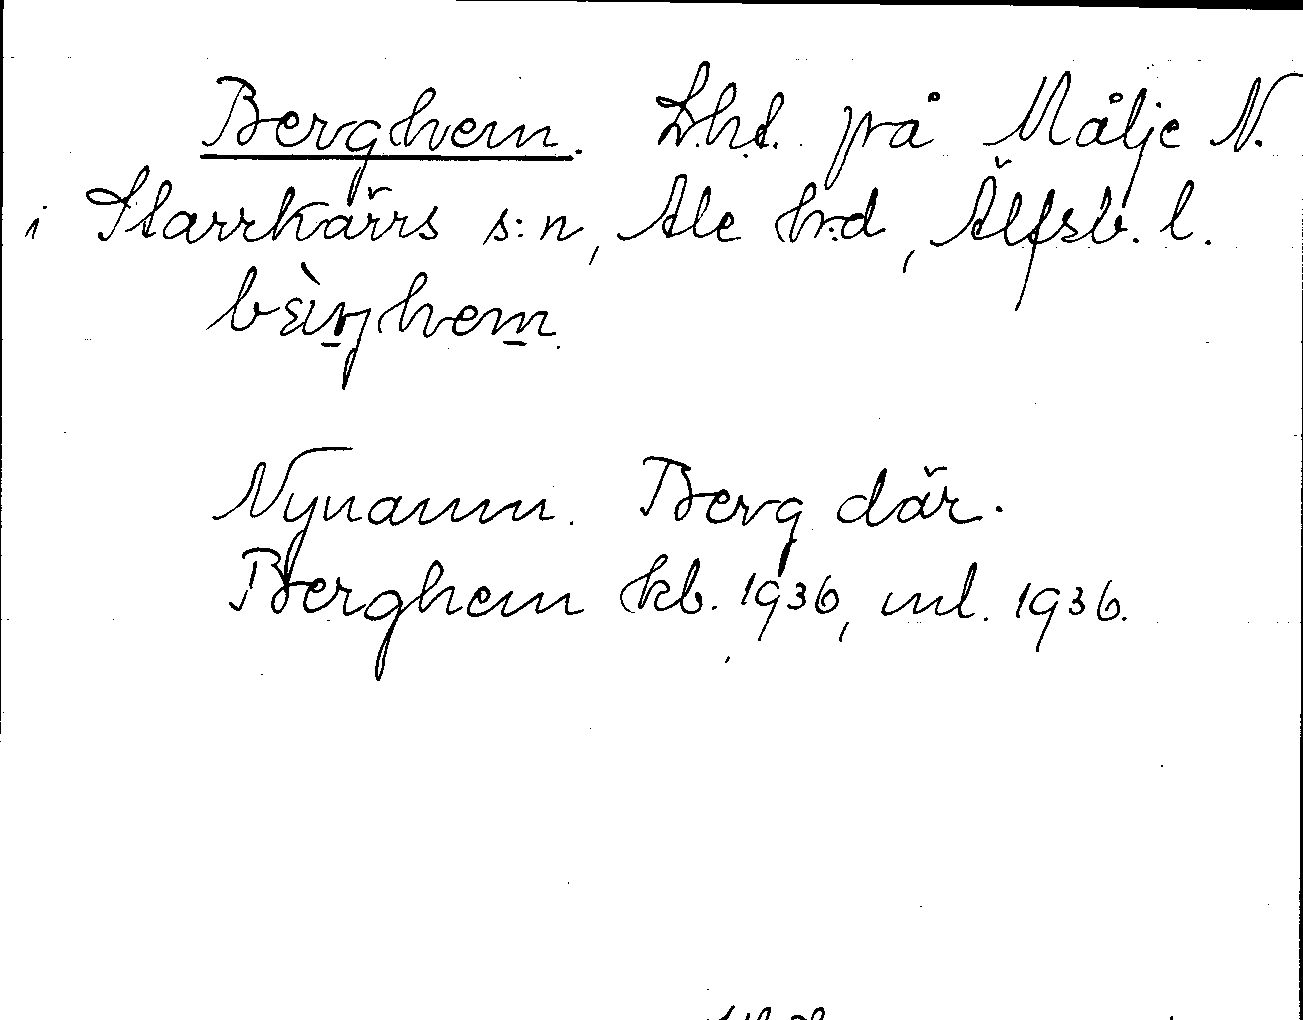 Berghem. Lht. på Målje N.
i Starrkärrs s:n, Ale h:d, Älfsb. l.
bɛ̀rŋhem
Nynamn. Berg där.
Berghem kb. 1936, ml. 1936.